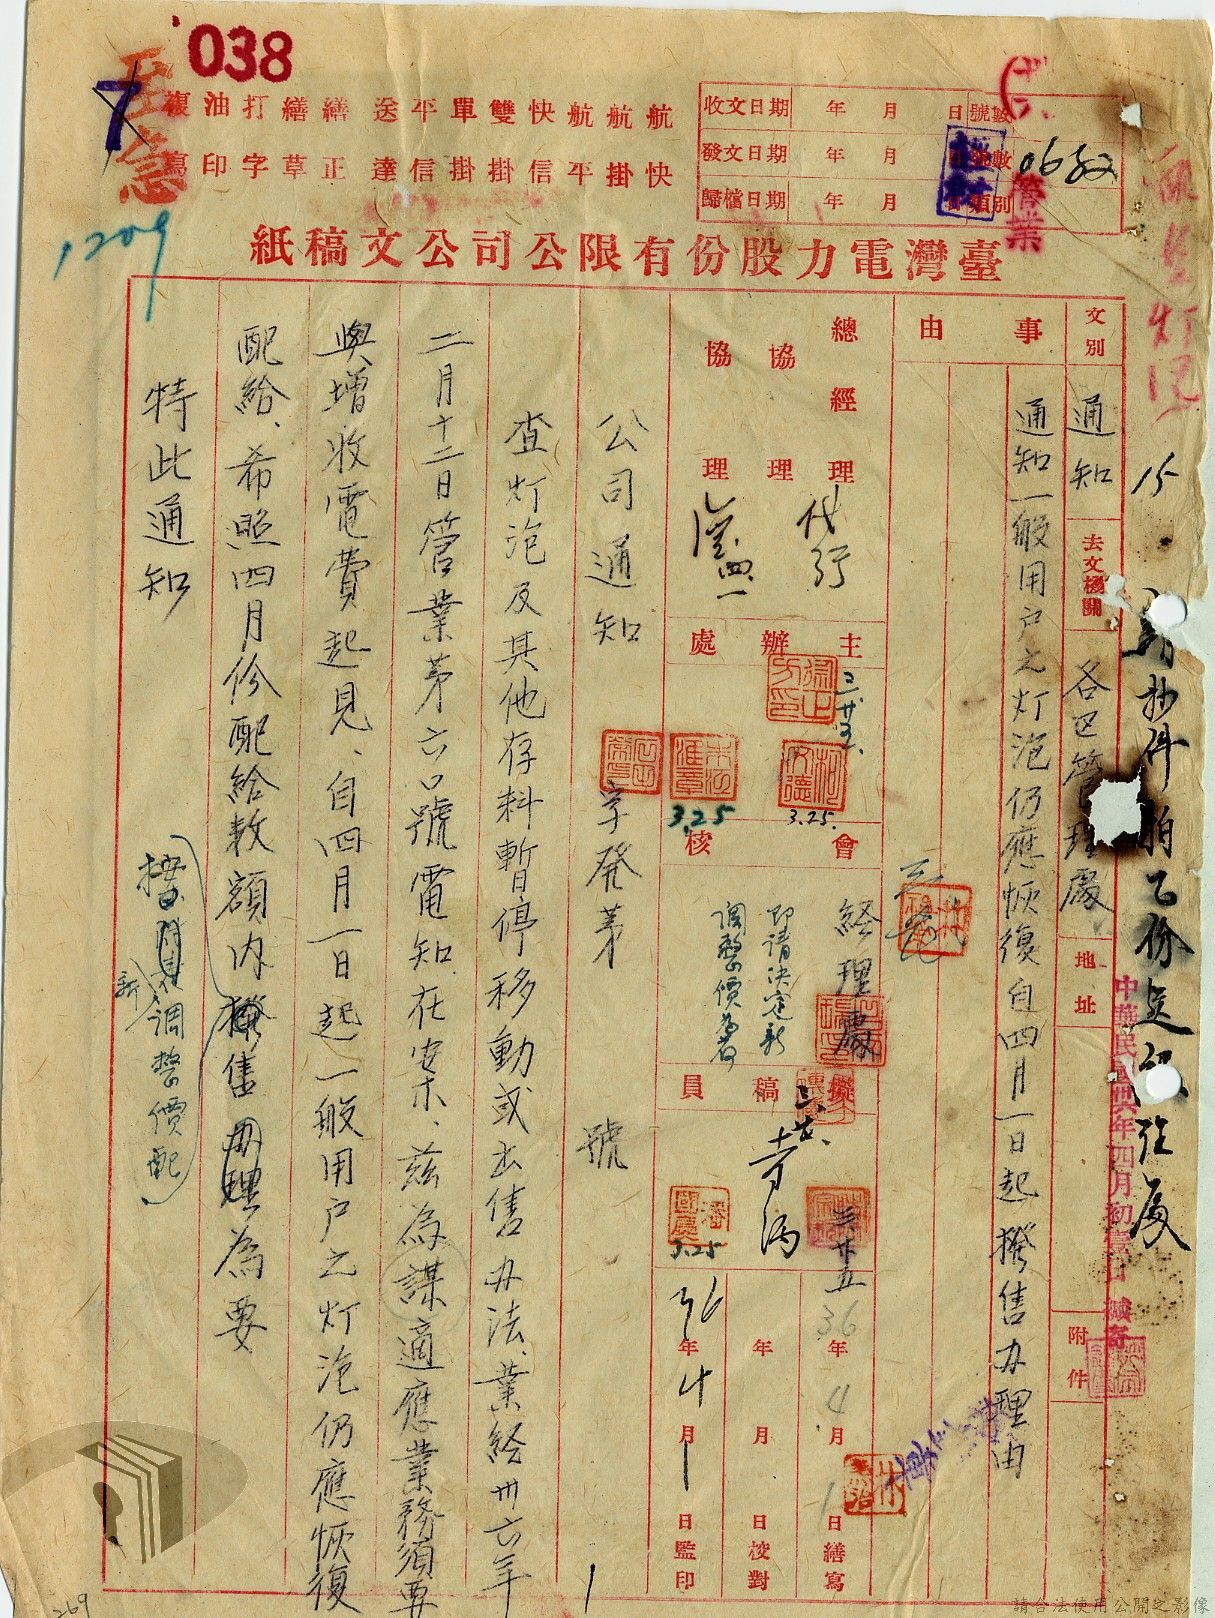 038
至急
1209
航航航快雙單平送繕繕打油複
快掛平信掛掛信達正草字印寫
收文日期 年 月 日 號數
發文日期 年 月 號數 0682
歸檔日期 年 月 類別
營業
臺灣電力股份有限公司公文稿紙
抄件
文別 通知
去文機關 各區管理處
地址
附件
中華民國卅六年四月初壹日
事由
通知一般用户之灯泡仍應恢復自四月一日起撥售办理由
總經理 代行
協理
協理
四、一
主辦處
三廿五
3.25.
3.25
會核
經理處
即請決定新
調整價為荷
擬稿員
3.25
三廿五
36年4月1日繕寫
年 月 日校對
36年4月1日監印
公司通知 字發第 號
查灯泡及其他存料暫停移動或出售办法、業經卅六年
二月十二日管業第六口號電知在案、茲為謀適應業務須要
與增收電費起見、自四月一日起一般用户之灯泡仍應恢復
配給、希照四月份配給數額內撥售办理為要
按新調整價配
特此通知
269
請合法使用公開之影像